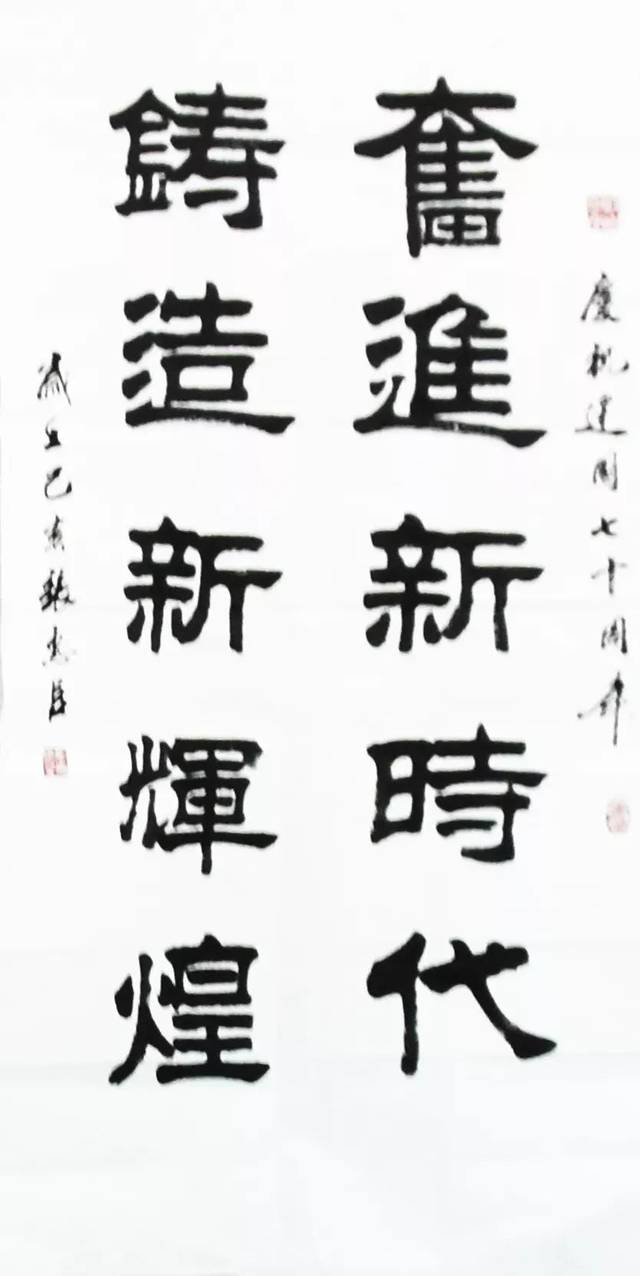 慶祝建国七十周年
奮進新時代
鑄造新輝煌
歲在己亥張惠臣